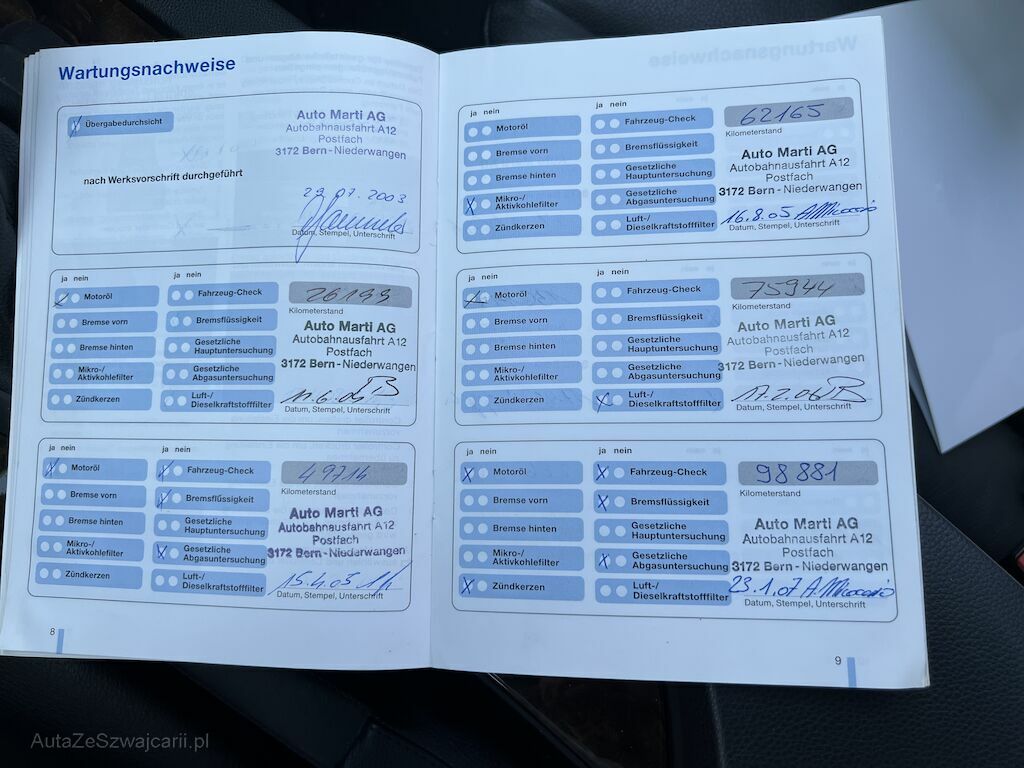 Wartungsnachweise
Übergabedurchsicht
Auto Marti AG
Autobahnausfahrt A12
Postfach
3172 Bern - Niederwangen
nach Werksvorschrift durchgeführt
29.07.2003
Datum, Stempel, Unterschrift
ja nein
ja nein
Motoröl
Fahrzeug-Check
26199
Kilometerstand
Bremse vorn
Bremsflüssigkeit
Auto Marti AG
Autobahnausfahrt A12
Postfach
3172 Bern - Niederwangen
Bremse hinten
Gesetzliche
Hauptuntersuchung
Mikro-/
Aktivkohlefilter
Gesetzliche
Abgasuntersuchung
Zündkerzen
Luft-/
Dieselkraftstofffilter
11.6.04
Datum, Stempel, Unterschrift
ja nein
ja nein
Motoröl
Fahrzeug-Check
49714
Kilometerstand
Bremse vorn
Bremsflüssigkeit
Auto Marti AG
Autobahnausfahrt A12
Postfach
3172 Bern - Niederwangen
Bremse hinten
Gesetzliche
Hauptuntersuchung
Mikro-/
Aktivkohlefilter
Gesetzliche
Abgasuntersuchung
Zündkerzen
Luft-/
Dieselkraftstofffilter
15.4.05
Datum, Stempel, Unterschrift
8
ja nein
ja nein
Motoröl
Fahrzeug-Check
62165
Kilometerstand
Bremse vorn
Bremsflüssigkeit
Auto Marti AG
Autobahnausfahrt A12
Postfach
3172 Bern - Niederwangen
Bremse hinten
Gesetzliche
Hauptuntersuchung
Mikro-/
Aktivkohlefilter
Gesetzliche
Abgasuntersuchung
Zündkerzen
Luft-/
Dieselkraftstofffilter
16.8.05
Datum, Stempel, Unterschrift
ja nein
ja nein
Motoröl
Fahrzeug-Check
75944
Kilometerstand
Bremse vorn
Bremsflüssigkeit
Auto Marti AG
Autobahnausfahrt A12
Postfach
3172 Bern - Niederwangen
Bremse hinten
Gesetzliche
Hauptuntersuchung
Mikro-/
Aktivkohlefilter
Gesetzliche
Abgasuntersuchung
Zündkerzen
Luft-/
Dieselkraftstofffilter
17.2.06
Datum, Stempel, Unterschrift
ja nein
ja nein
Motoröl
Fahrzeug-Check
98881
Kilometerstand
Bremse vorn
Bremsflüssigkeit
Auto Marti AG
Autobahnausfahrt A12
Postfach
3172 Bern - Niederwangen
Bremse hinten
Gesetzliche
Hauptuntersuchung
Mikro-/
Aktivkohlefilter
Gesetzliche
Abgasuntersuchung
Zündkerzen
Luft-/
Dieselkraftstofffilter
23.1.07
Datum, Stempel, Unterschrift
9
AutaZeSzwajcarii.pl